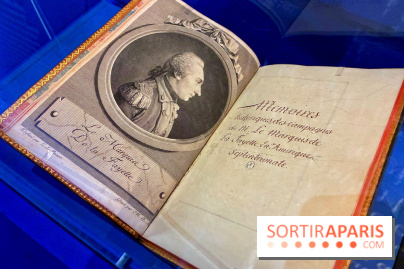 Le Marquis
De la Fayette.
Mémoires
historiques des campagnes
de M. Le Marquis de
La Fayette En Amérique
Septentrionale
SORTIRAPARIS
.COM